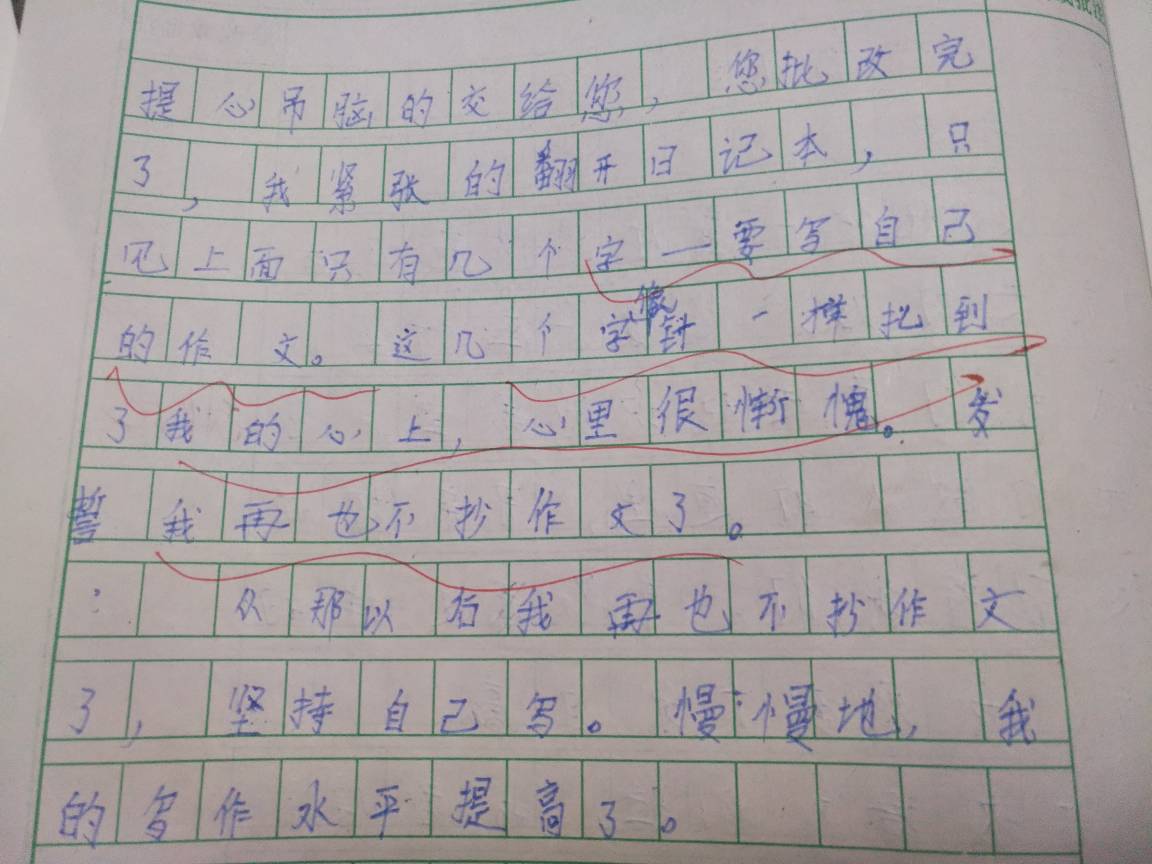 提心吊脑的交给您，您批改完
了，我紧张的翻开日记本，只
见上面只有几个字一要写自己
的作文。这几个字像针一样扎到
了我的心上，心里很惭愧。发
誓我再也不抄作文了。
从那以后我再也不抄作文
了，坚持自己写。慢慢地，我
的写作水平提高了。